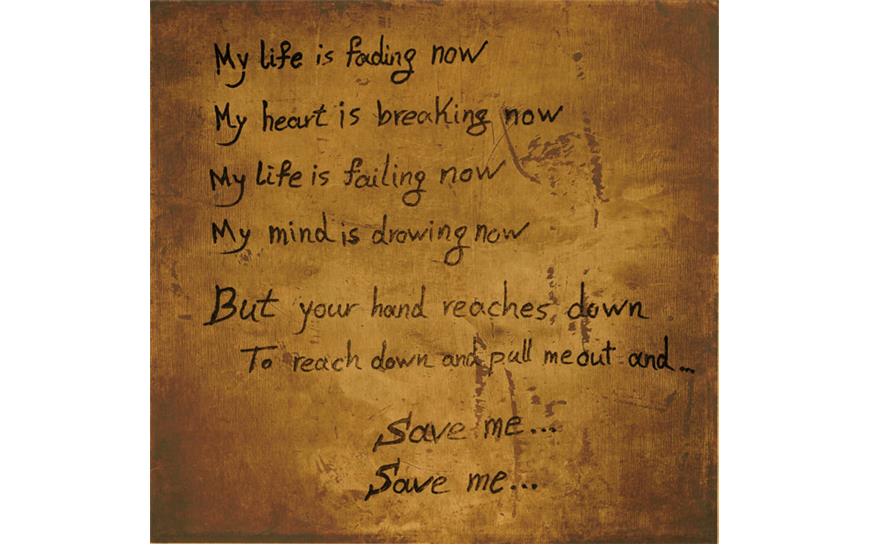 My life is fading now
My heart is breaking now
My life is failing now
My mind is drowing now
But your hand reaches down
To reach down and pull me out and...
Save me...
Save me...